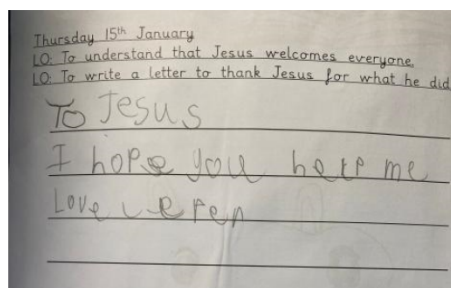 Thursday 15th January
LO: To understand that Jesus welcomes everyone.
LO: To write a letter to thank Jesus for what he did
To Jesus
I hope you help me
Love